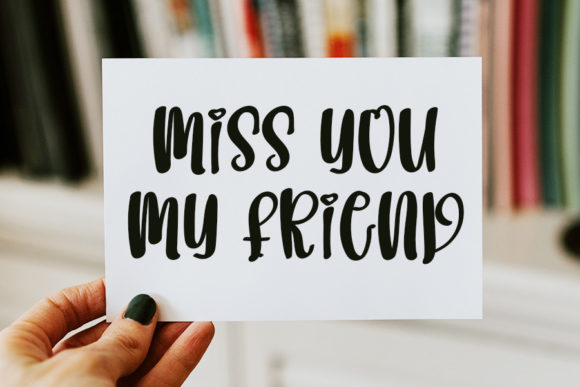 miss you
my friend